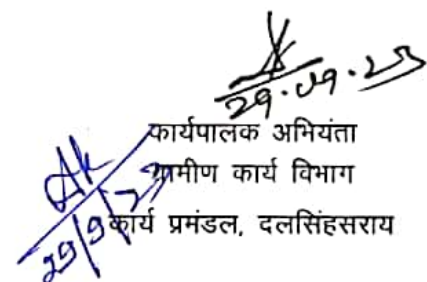 29.09.23
कार्यपालक अभियंता
ग्रामीण कार्य विभाग
कार्य प्रमंडल, दलसिंहसराय
29/9/23